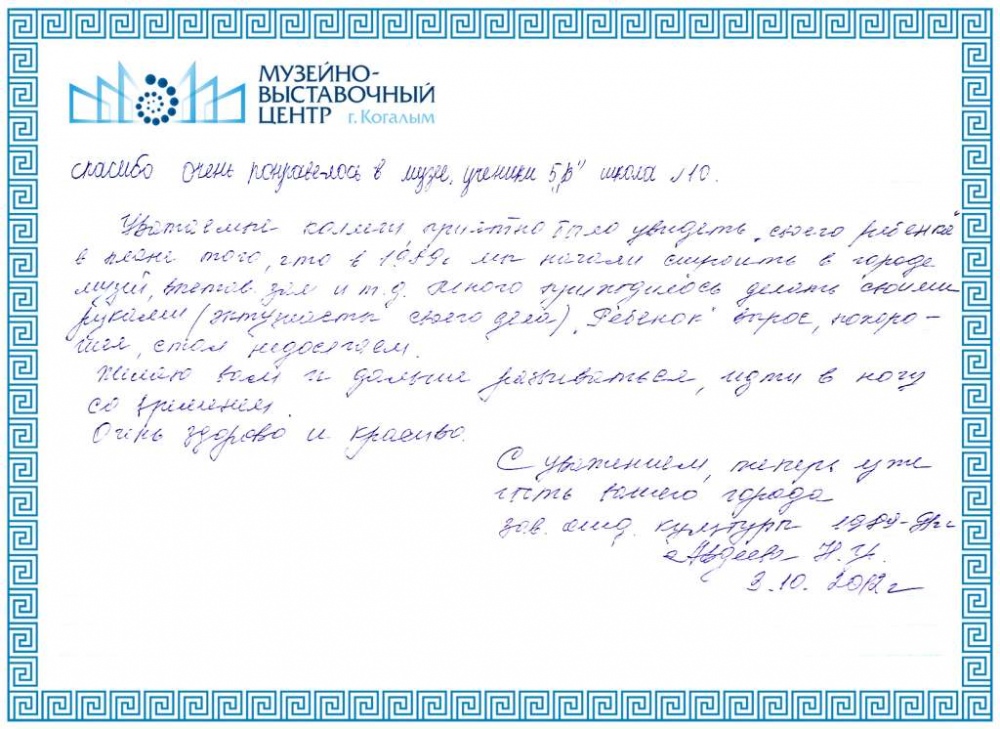 МУЗЕЙНО-
ВЫСТАВОЧНЫЙ
ЦЕНТР г. Когалым
спасибо очень понравелось в музее, ученики 5„Б" школа №10.
Уважаемые коллеги, приятно было увидеть „своего ребенка"
в плане того, что в 1989г мы начали строить в городе
музей, выстав. зал и т.д. Много приходилось делать своими
руками (энтузиасты своего дела). „Ребенок" вырос, похоро-
шел, стал недосягаем.
Желаю вам и дальше развиваться, идти в ногу
со временем.
Очень здорово и красиво.
С уважением, теперь уже
гость вашего города
зав. отд. культуры 1989-
Авдеева Н.
9.10.2012г